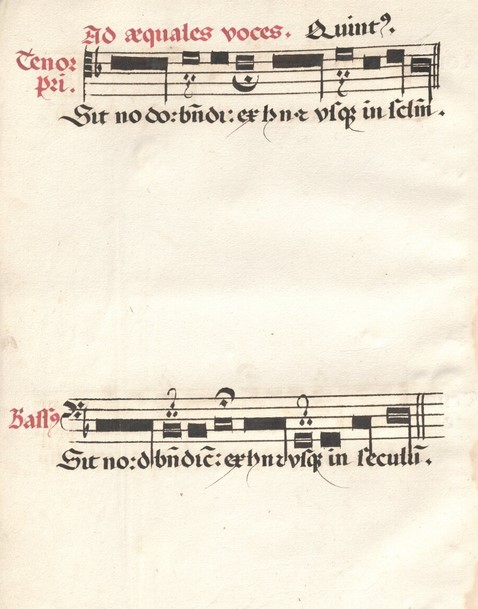 Ad æquales voces. Quintꝰ.
Tenor
pri.
Sit no do: bn̄di: ex h n ꞇ vsqꝫ in sclm̄.
Bassꝰ
Sit no: d bn̄dic̄: ex h n ꞇ vsqꝫ in seculū.